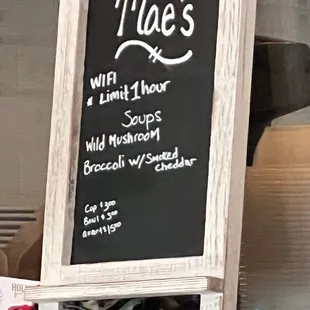 Mae's
WIFI
* Limit 1 hour
Soups
Wild Mushroom
Broccoli w/Smoked
cheddar
Cup $300
Bowl $
Quart $1500
HOL